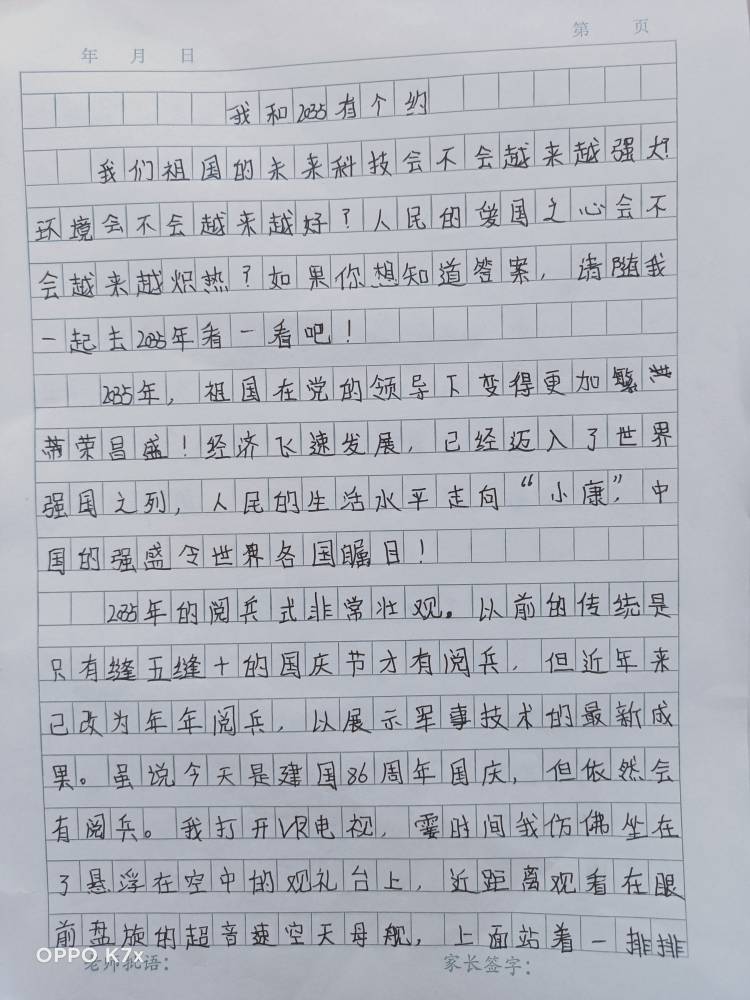 第 页
年 月 日
我和2035有个约
我们祖国的未来科技会不会越来越强大?
环境会不会越来越好?人民的爱国之心会不
会越来越炽热?如果你想知道答案,请随我
一起去2035年看一看吧!
2035年,祖国在党的领导下变得更加繁
荣昌盛!经济飞速发展,已经迈入了世界
强国之列,人民的生活水平走向“小康”,中
国的强盛令世界各国瞩目!
2035年的阅兵式非常壮观。以前的传统是
只有缝五缝十的国庆节才有阅兵,但近年来
已改为年年阅兵,以展示军事技术的最新成
果。虽说今天是建国86周年国庆,但依然会
有阅兵。我打开VR电视,霎时间我仿佛坐在
了悬浮在空中的观礼台上,近距离观看在眼
前盘旋的超音速空天母舰,上面站着一排排
OPPO K7x
老师批语: 家长签字: